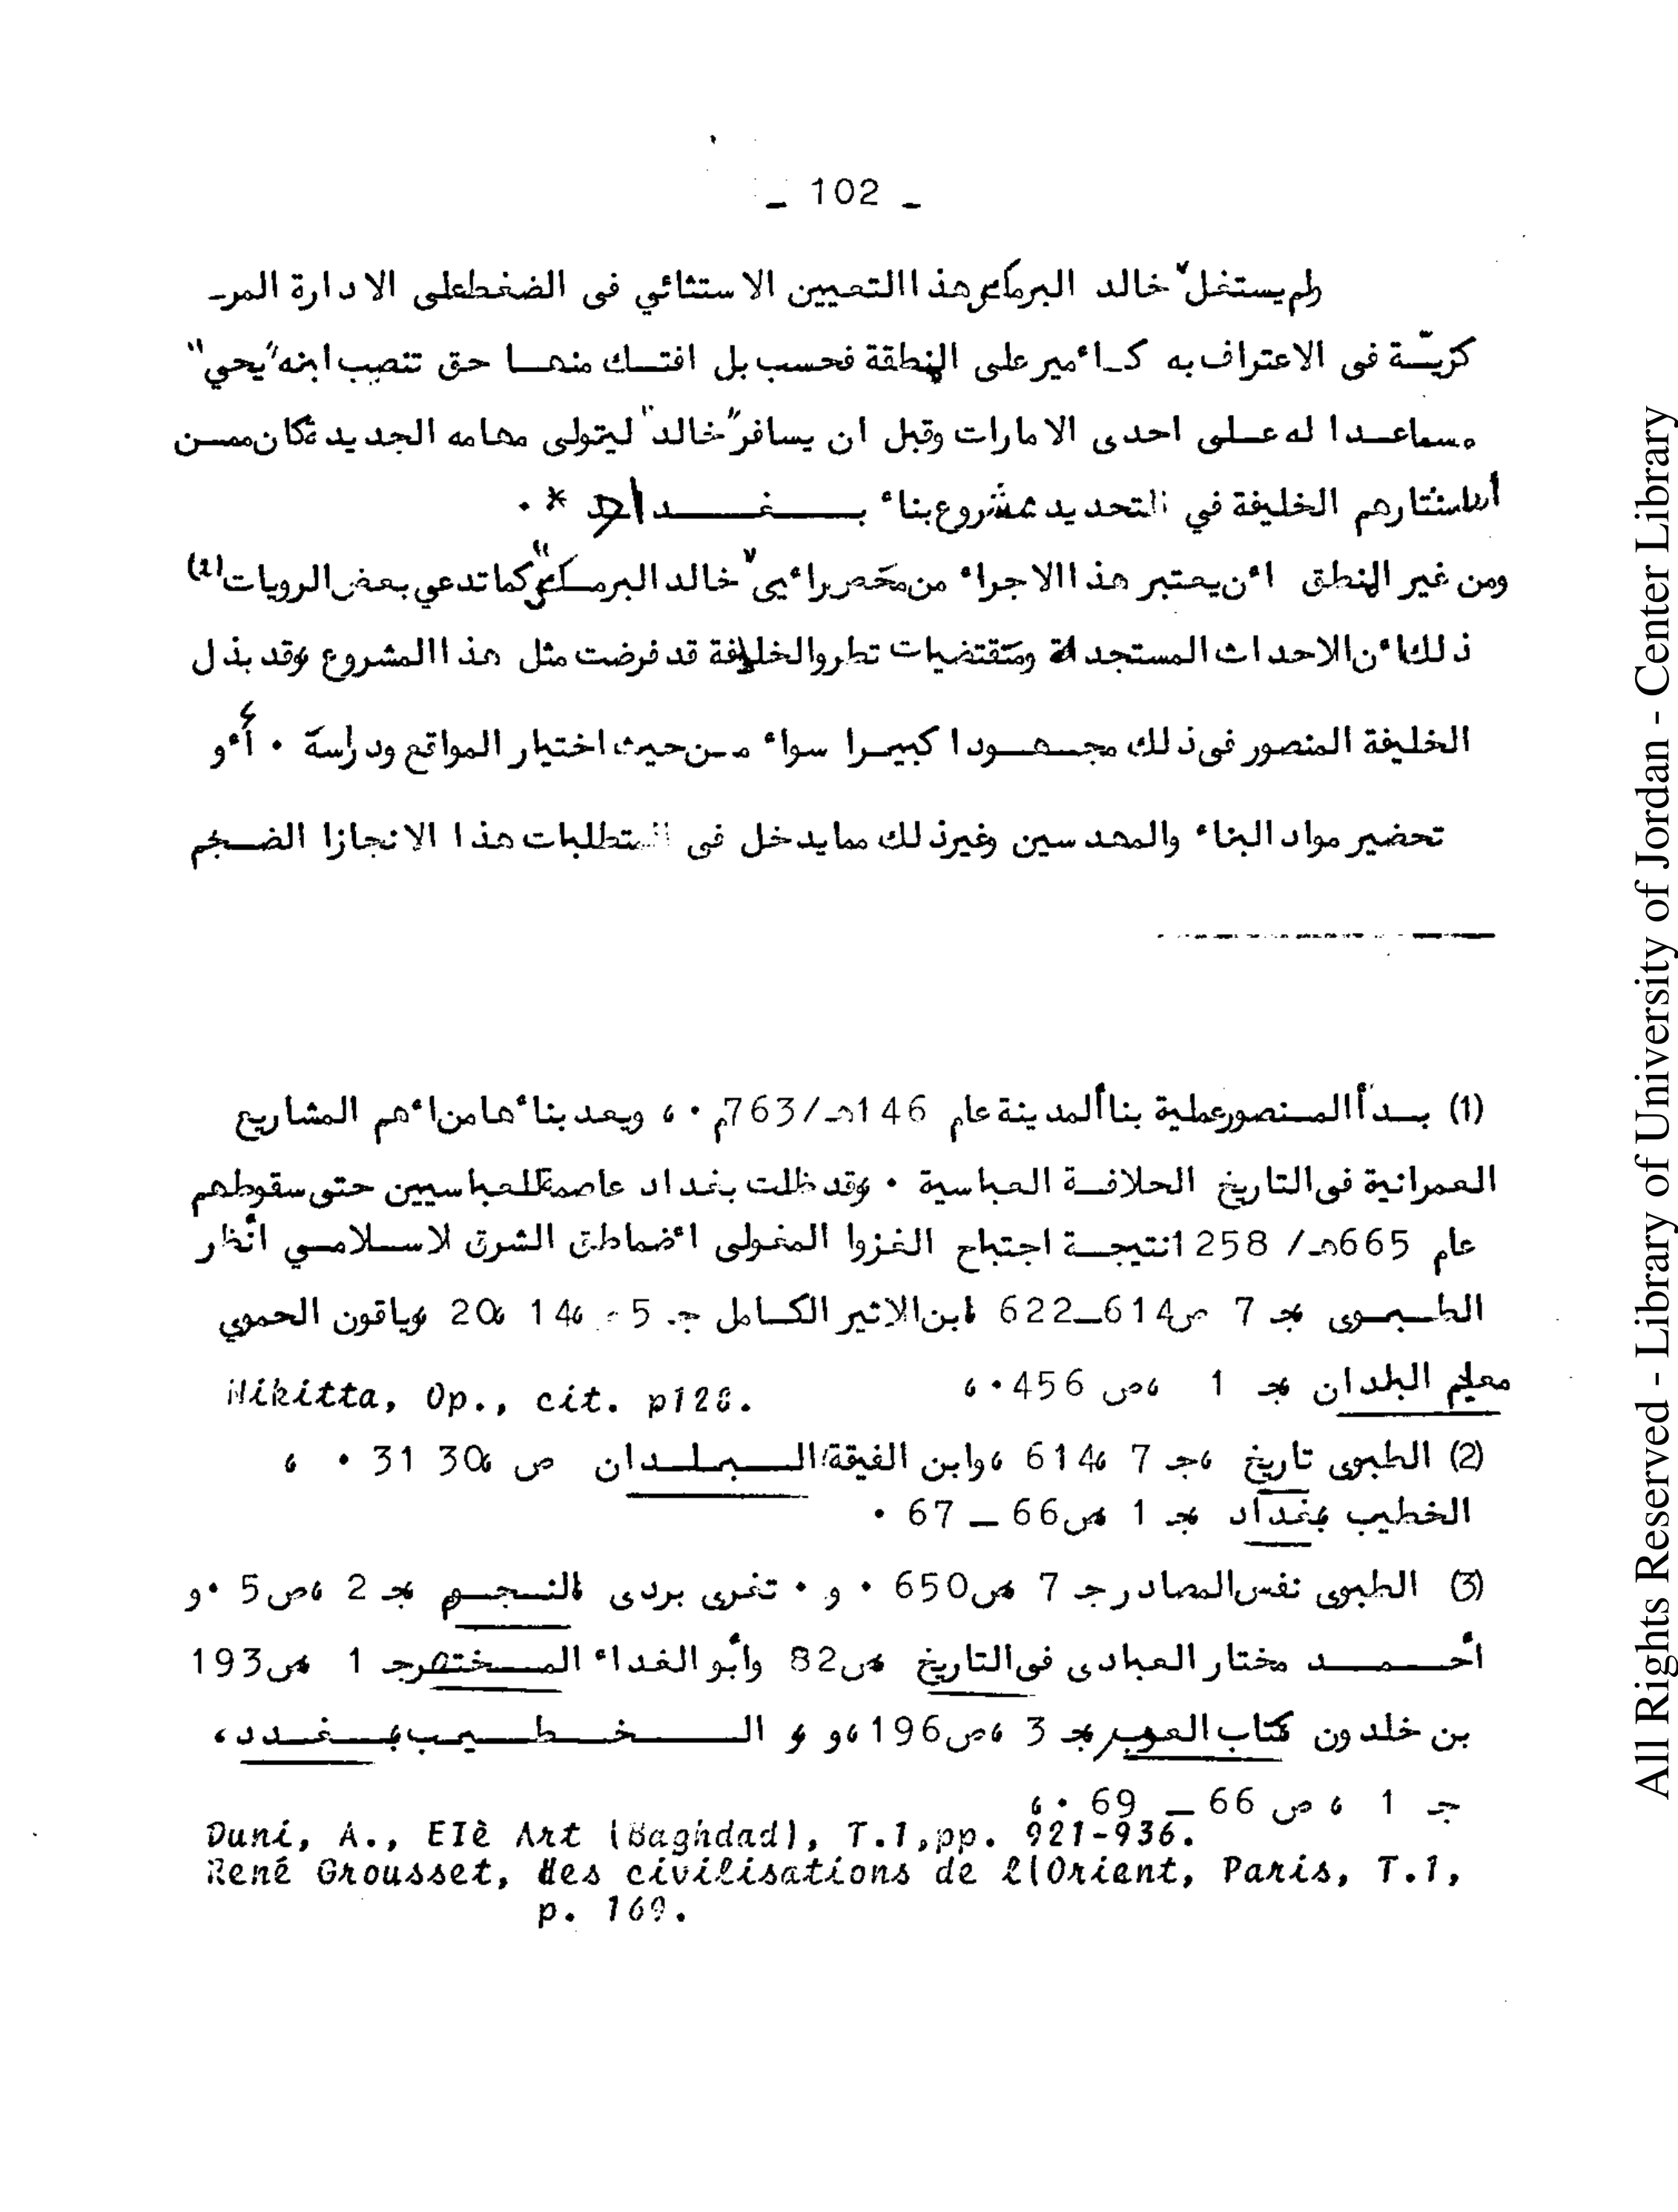 - 102 -
ولم يستغل "خالد البرمكي هذا التعيين الاستثائي فى الضغط على الادارة المر-
كزيّة فى الاعتراف به كأمير على المنطقة فحسب بل افتك منها حق تنصب ابنه "يحي"
مساعدا له على احدى الامارات وقبل ان يسافر "خالد" ليتولى مهامه الجديد ةكان ممن
أستشارهم الخليفة في التحديد مشروع بناء بغداد * .
ومن غير المنطق اءن يعتبر هذا الاجراء من محض راءيى "خالد البرمكي" كما تدعي بعض الرويات (2)
ذلك اءن الاحداث المستجدة ومتقتضيات تطروالخلافة قد فرضت مثل هذا المشروع ،وقد بذل
الخليفة المنصور فى ذلك مجهودا كبيرا سواء من حيث اختيار المواقع ودراسة . أو
تحضير مواد البناء والمهدسين وغيرذلك ممايدخل فى المتطلبات هذا الانجازا الضخم
(1) بدأ المنصورعملية بناألمدينة عام 146هـ/763م . ، ويعد بناءها من اءهم المشاريع
العمرانية فى التاريخ الحلافة العباسية . ،وقد ظلت بغداد عاصمة للعباسيين حتى سقوطهم
عام 665هـ/ 1258نتيجة اجتياح الغزوا المغولى اءضماطق الشرق لاسلامي انُظر
الطبوى ،جـ 7 ص614_622 ،ابن الاثير الكامل جـ 5 - 14، 20، ،وياقون الحموي
معلم البلدان ،جـ 1 ،ص 456 . ،
Nikitta, Op., cit. p128.
(2) الطبوى تاريخ ،جـ 7 ،614 ،وابن الفيقة/البلدان ص 30، 31 . ،
الخطيب ،بغداد ،جـ 1 ،ص66 _ 67 .
(3) الطبوى نفس المصادر جـ 7 ،ص650 . و . تغرى بردى ،النجم ،جـ 2 ،ص5 .و
أحمد مختار العبادى فى التاريخ ،ص82 وأبو الغداء المختصرجـ 1 ،ص193
بن خلدون كتاب العبر ،جـ 3 ،ص196 ،و و الخطيب ،بغدد ،
جـ 1 ، ص 66 _ 69 . ،
Duni, A., EIè Art (Baghdad), T.1,pp. 921-936.
René Grousset, des civilisations de l(Orient, Paris, T.1,
p. 169.
All Rights Reserved - Library of University of Jordan - Center Library